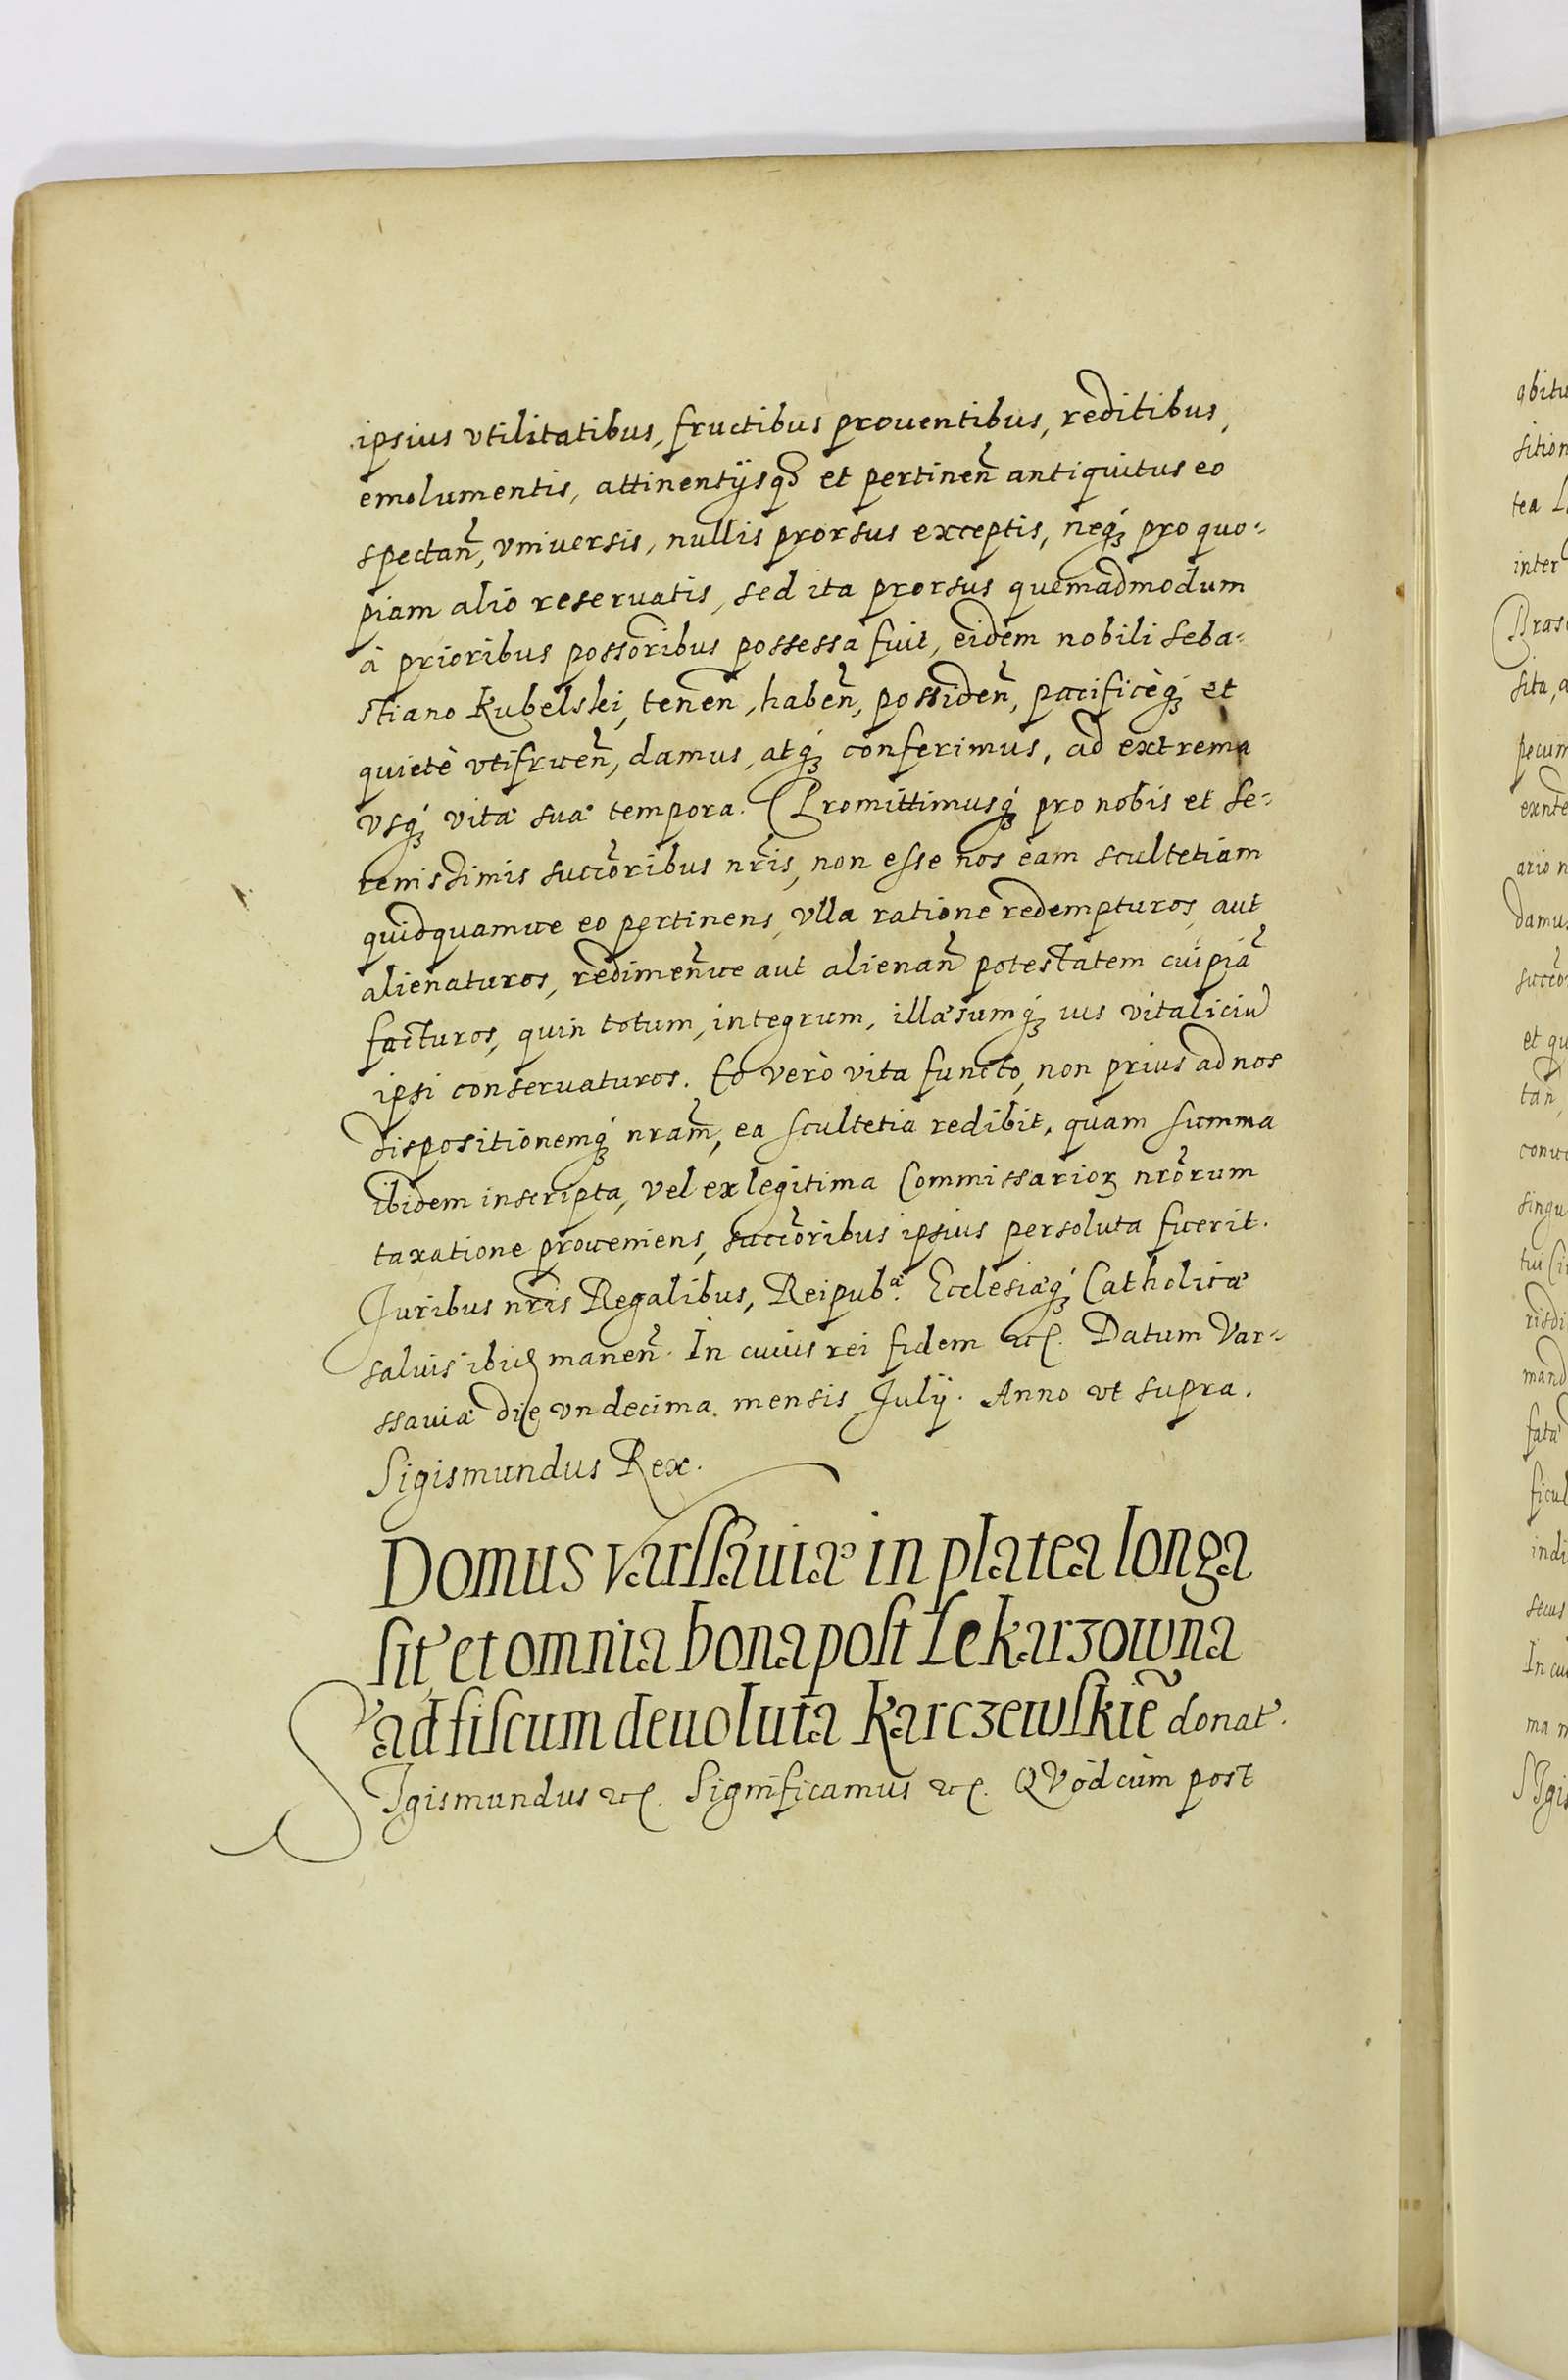 ipsius vtilitatibus, fructibus prouentibus, reditibus,
emolumentis, attinentijsqꝫ et pertineñ antiquitus eo
spectañ, vniuersis, nullis prorsus exceptis, neqꝫ pro quo-
piam alio reseruatis, sed ita prorsus quemadmodum
à prioribus possoribus possessa fuit, eidem nobili Seba-
stiano Kubelski, teneñ, habeñ, possideñ, pacificèqꝫ et
quietè vtifrueñ, damus, atqꝫ conferimus, ad extrema
vsqꝫ vitæ suæ tempora. Promittimusqꝫ pro nobis et Se-
renissimis succoribus nris, non esse nos eam scultetiam
quidquamue eo pertinens, vlla ratione redempturos, aut
alienaturos, redimeñue aut alienañ potestatem cuipiã
facturos, quin totum, integrum, illæsumqꝫ ius vitaliciũ
ipsi conseruaturos. Eo verò vita functo, non prius ad nos
dispositionemqꝫ nram, ea scultetia redibit, quam summa
ibidem inscripta, vel ex legitima Commissarioꝝ nrorum
taxatione proueniens, succoribus ipsius persoluta fuerit.
Juribus nris Regalibus, Reipubᵃᵉ. Ecclesiæqꝫ Catholicæ
saluis ibidꝫ maneñ. In cuius rei fidem ꝛc. Datum Var-
ssauiæ die vndecima mensis Julij. Anno vt supra.
Sigismundus Rex.
Domus Varssauiæ in platea longa
sit' et omnia bona post Lekarzowna
ad fiscum deuoluta Karczewskiẽ donat'.
SIgismundus ꝛc. Significamus ꝛc. QVòd cùm post